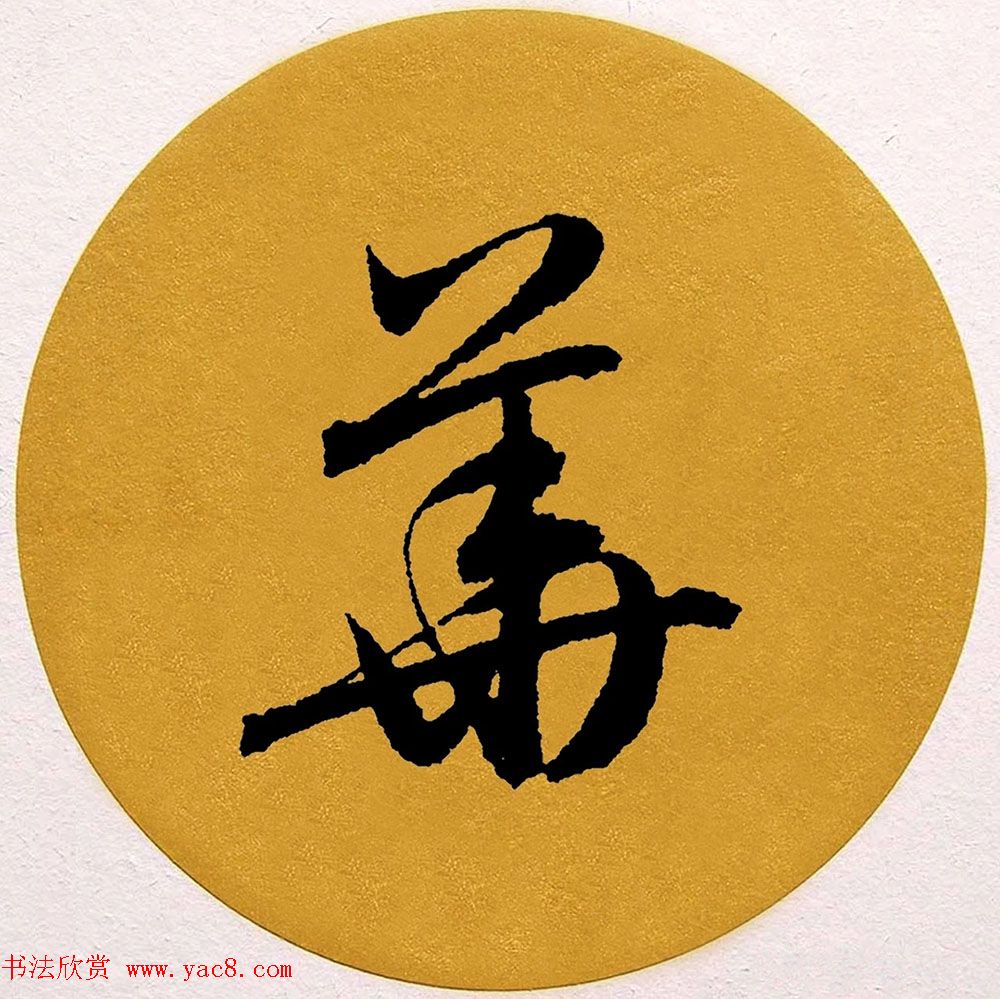 華
书法欣赏 www.yac8.com